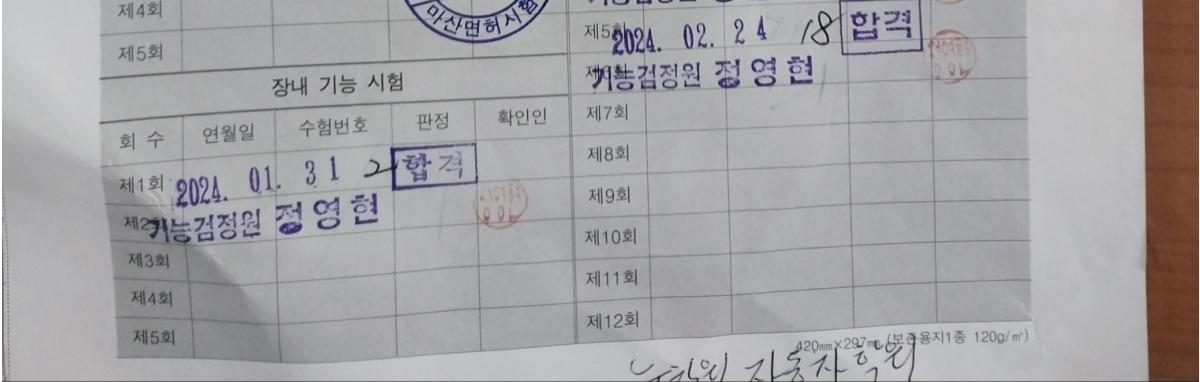 제4회
마산면허시험
제5회
장내 기능 시험
회 수 연월일 수험번호 판정 확인인
제1회 2024. 01. 31 2 합격
제2 기능검정원 정영현
제3회
제4회
제5회
제5 2024. 02. 24 18 합격
기능검정원 정영현
제7회
제8회
제9회
제10회
제11회
제12회
420㎜×297㎜ (보존용지1종 120g/㎡)
자동차학원